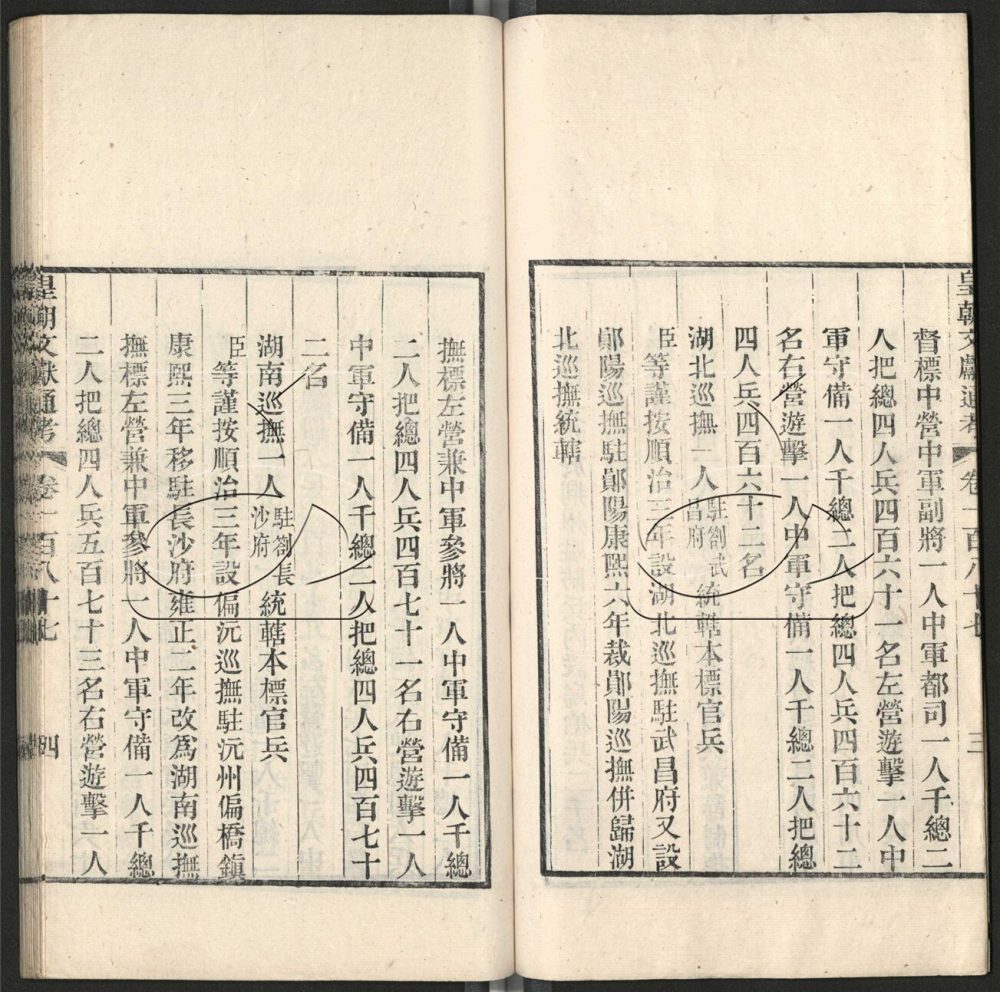 皇朝文獻通考 卷一百八十七 三
督標中營中軍副將一人中軍都司一人千總二
人把總四人兵四百六十一名左營遊擊一人中
軍守備一人千總二人把總四人兵四百六十二
名右營遊擊一人中軍守備一人千總二人把總
四人兵四百六十三名
湖北巡撫一人駐劄武昌府統轄本標官兵
臣等謹按順治三年設湖北巡撫駐武昌府又設
鄖陽巡撫駐鄖陽康熙六年裁鄖陽巡撫併歸湖
北巡撫統轄
撫標左營兼中軍參將一人中軍守備一人千總
二人把總四人兵四百七十一名右營遊擊一人
中軍守備一人千總二人把總四人兵四百七十
二名
湖南巡撫一人駐劄長沙府統轄本標官兵
臣等謹按順治三年設偏沅巡撫駐沅州偏橋鎮
康熙三年移駐長沙府雍正二年改為湖南巡撫
撫標左營兼中軍參將一人中軍守備一人千總
二人把總四人兵五百七十三名右營遊擊一人
皇朝文獻通考 卷一百八十七 四